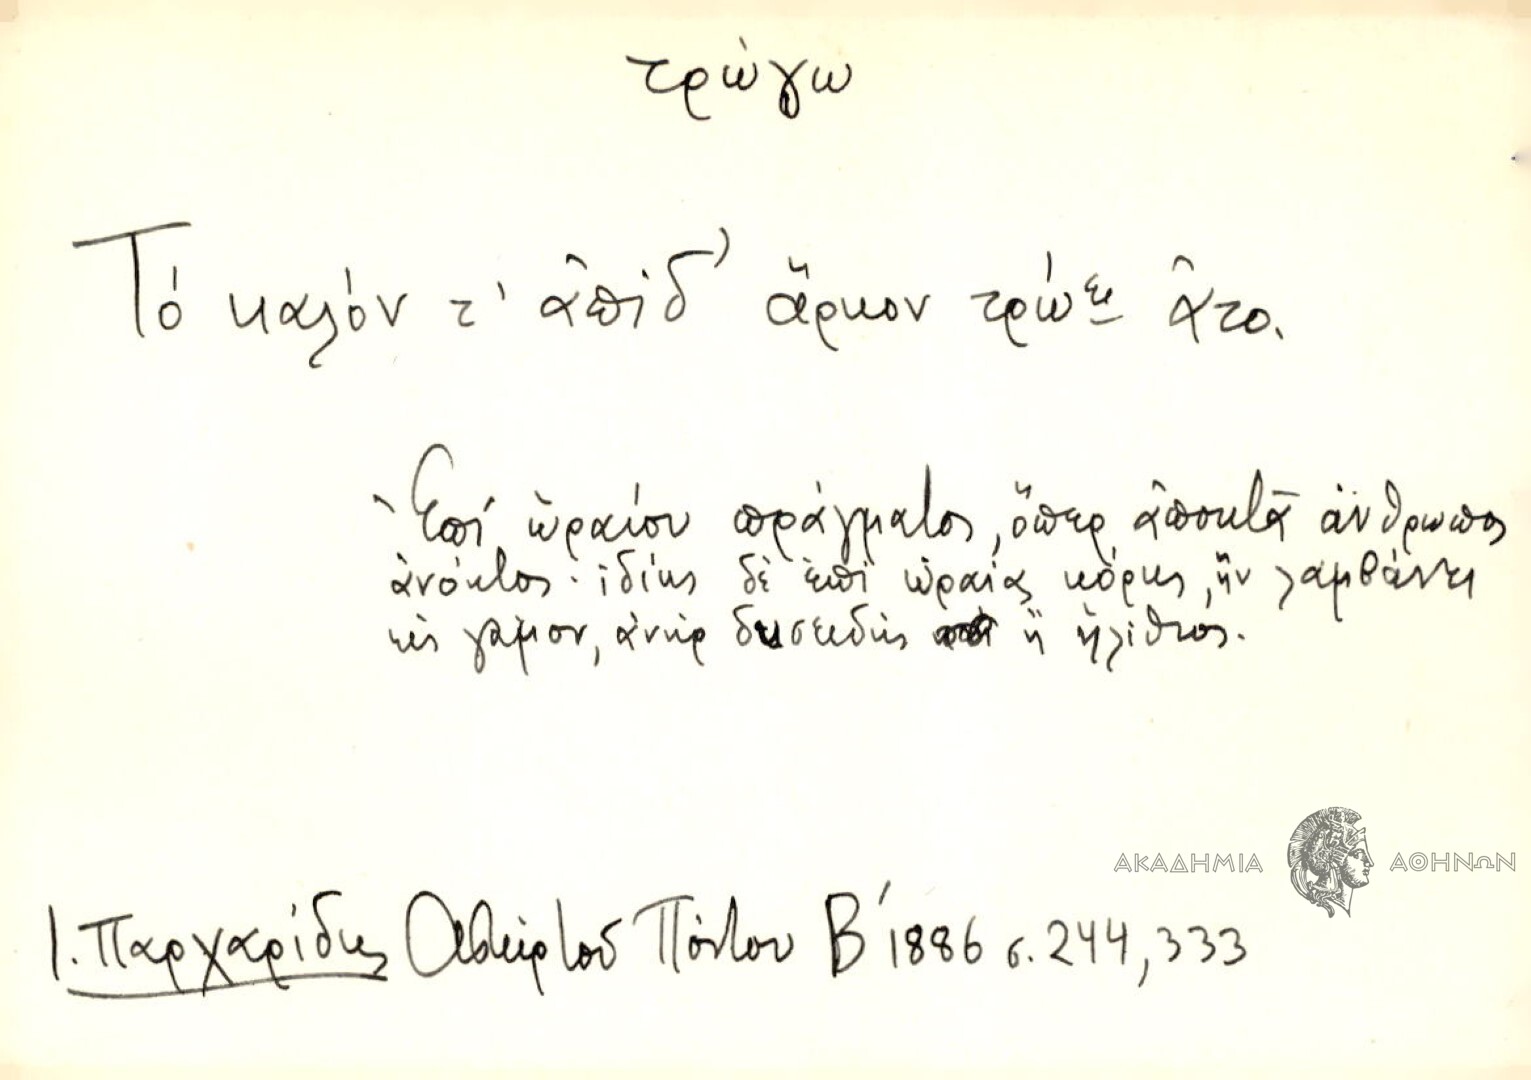 τρώγω
Τό καλόν τ' ἀπίδ' ἄρκον τρώει ἀτο.
Ἐπί ὡραίου πράγματος, ὅπερ ἀποκτᾶ ἄνθρωπος
ἀνόητος· ἰδίως δὲ ἐπὶ ὡραίας κόρης, ἥν λαμβάνει
εἰς γάμον, ἀνήρ δυσειδής ἤ ἠλίθιος.
Ι. Παρχαρίδης Πόντου Β' 1886 σ. 244, 333
ΑΚΑΔΗΜΙΑ ΑΘΗΝΩΝ